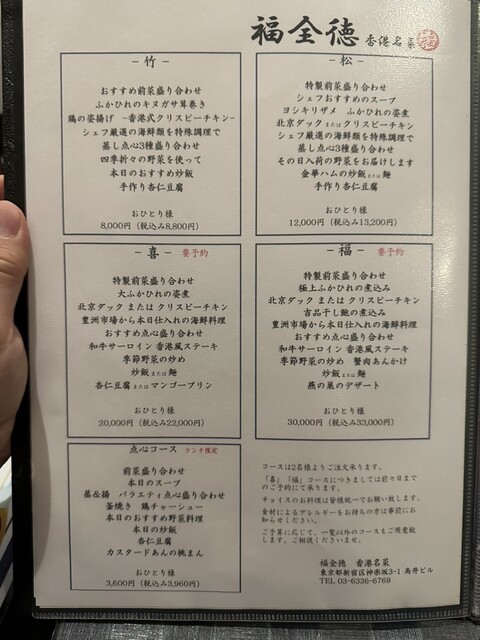 福全徳 香港名菜 福
－竹－
おすすめ前菜盛り合わせ
ふかひれのキヌガサ茸巻き
鶏の姿揚げ －香港式クリスピーチキン－
シェフ厳選の海鮮類を特殊調理で
蒸し点心3種盛り合わせ
四季折々の野菜を使って
本日のおすすめ炒飯
手作り杏仁豆腐
おひとり様
8,000円（税込み8,800円）
－松－
特製前菜盛り合わせ
シェフおすすめのスープ
ヨシキリザメ ふかひれの姿煮
北京ダックまたはクリスピーチキン
シェフ厳選の海鮮類を特殊調理で
蒸し点心3種盛り合わせ
その日入荷の野菜をお届けします
金華ハムの炒飯または麺
手作り杏仁豆腐
おひとり様
12,000円（税込み13,200円）
－喜－ 要予約
特製前菜盛り合わせ
大ふかひれの姿煮
北京ダック または クリスピーチキン
豊洲市場から本日仕入れの海鮮料理
おすすめ点心盛り合わせ
和牛サーロイン 香港風ステーキ
季節野菜の炒め
炒飯または麺
杏仁豆腐またはマンゴープリン
おひとり様
20,000円（税込み22,000円）
－福－ 要予約
特製前菜盛り合わせ
極上ふかひれの煮込み
北京ダック または クリスピーチキン
吉品干し鮑の煮込み
豊洲市場から本日仕入れの海鮮料理
おすすめ点心盛り合わせ
和牛サーロイン 香港風ステーキ
季節野菜の炒め 蟹肉あんかけ
炒飯または麺
燕の巣のデザート
おひとり様
30,000円（税込み33,000円）
点心コース ランチ限定
前菜盛り合わせ
本日のスープ
蒸&揚 バラエティ点心盛り合わせ
釜焼き 鶏チャーシュー
本日のおすすめ野菜料理
本日の炒飯
杏仁豆腐
カスタードあんの桃まん
おひとり様
3,600円（税込み3,960円）
コースは2名様よりご注文承ります。
「喜」「福」コースにつきましては前々日まで
のご予約にて承ります。
チョイスのお料理は皆様統一でお願い致します。
食材によるアレルギーをお持ちの方は事前にお
知らせください。
ご予算に応じて、一覧以外のコースもご用意致
します。ご相談くださいませ。
福全徳 香港名菜
東京都新宿区神楽坂3-1 髙井ビル
TEL 03-6336-6769